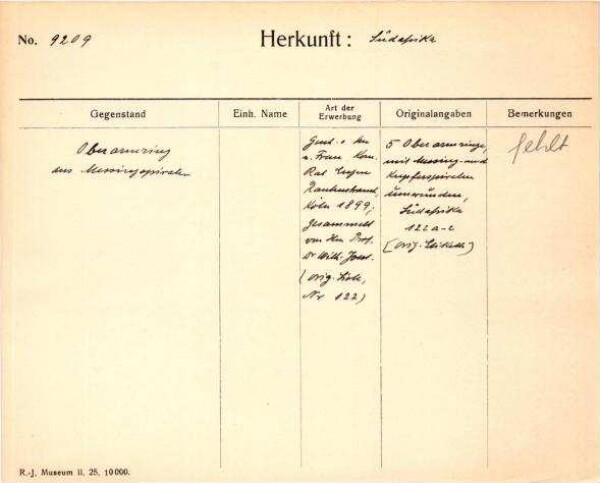 No. 9209 Herkunft: Südafrika
Gegenstand Einh. Name Art der Erwerbung Originalangaben Bemerkungen
Oberarmring
aus Messingspiralen
Gesch. v. Hrn
u. Frau Kom.
Rat Eugen
Rautenstrauch,
Köln 1899;
gesammelt
von Hrn Prof.
Dr Wilh. Joest.
(orig. Liste,
Nr 122)
5 Oberarmringe,
mit Messing- und
Kupferspiralen
umwunden,
Südafrika
122 a-e
(orig. Etikett)
fehlt
R.-J. Museum II. 25. 10000.